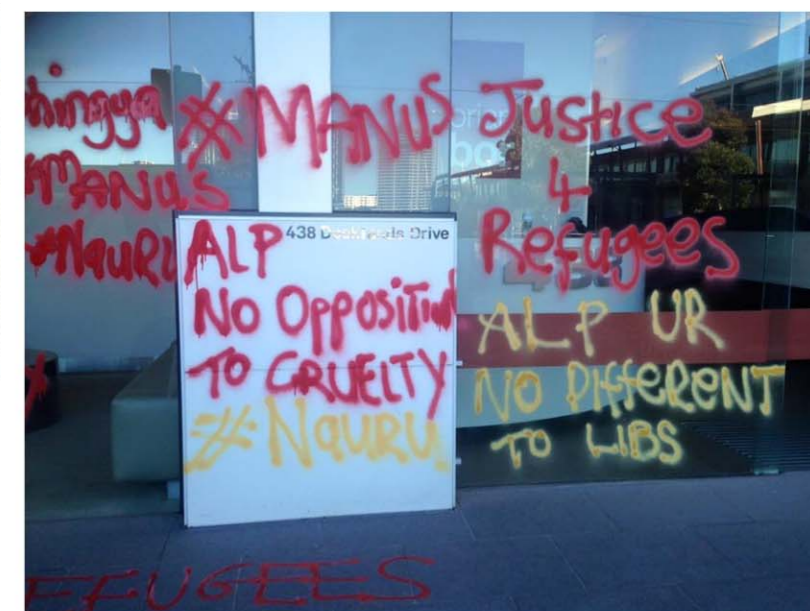 #MANUS
MANUS
#NauRU
ALP
438 Docklands Drive
NO OPPOSITION
TO CRUELTY
#NauRU
Justice
4
Refugees
438
ALP UR
NO DIFFERENT
TO LIBS